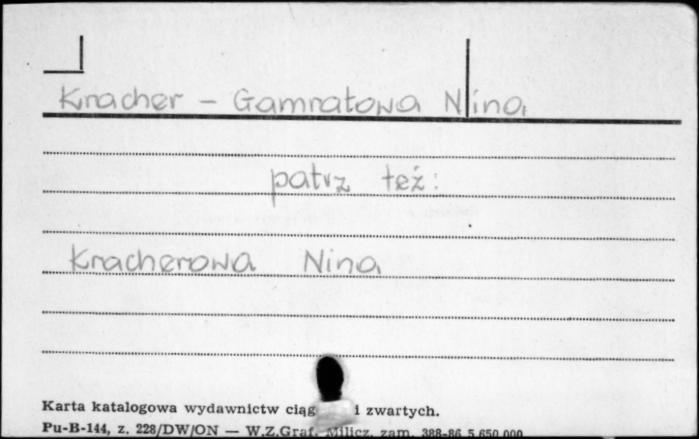 Kracher - Gamratowa Nina
patrz też:
Kracherowa Nina
Karta katalogowa wydawnictw ciąg i zwartych.
Pu-B-144, z. 228/DW/ON — W.Z.Graf. Milicz, zam. 388-86 5.650.000